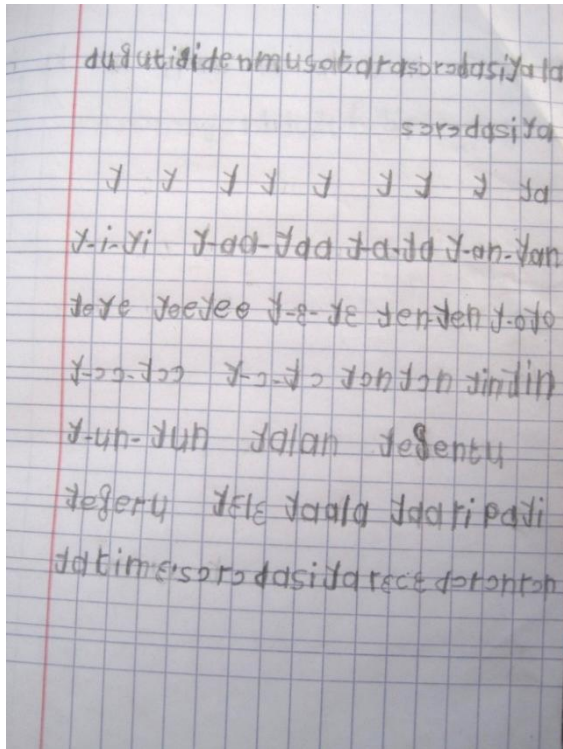 dugutigidenmusotarasɔrɔdasiyala
sɔrɔdasiya
y y y y y y y y ya
y-i-yi y-aa-yaa y-a-ya y-an-yan
yeye yeeyee y-ɛ-yɛ yen-yen y-oyo
y-ɔɔ-yɔɔ y-ɔ-yɔ yɔnyɔn yinyin
y-un-yun yalan yegentu
yegeru yɛlɛ yaala yaari payi
yatimɛ sɔrɔdasiyarɛcɛ